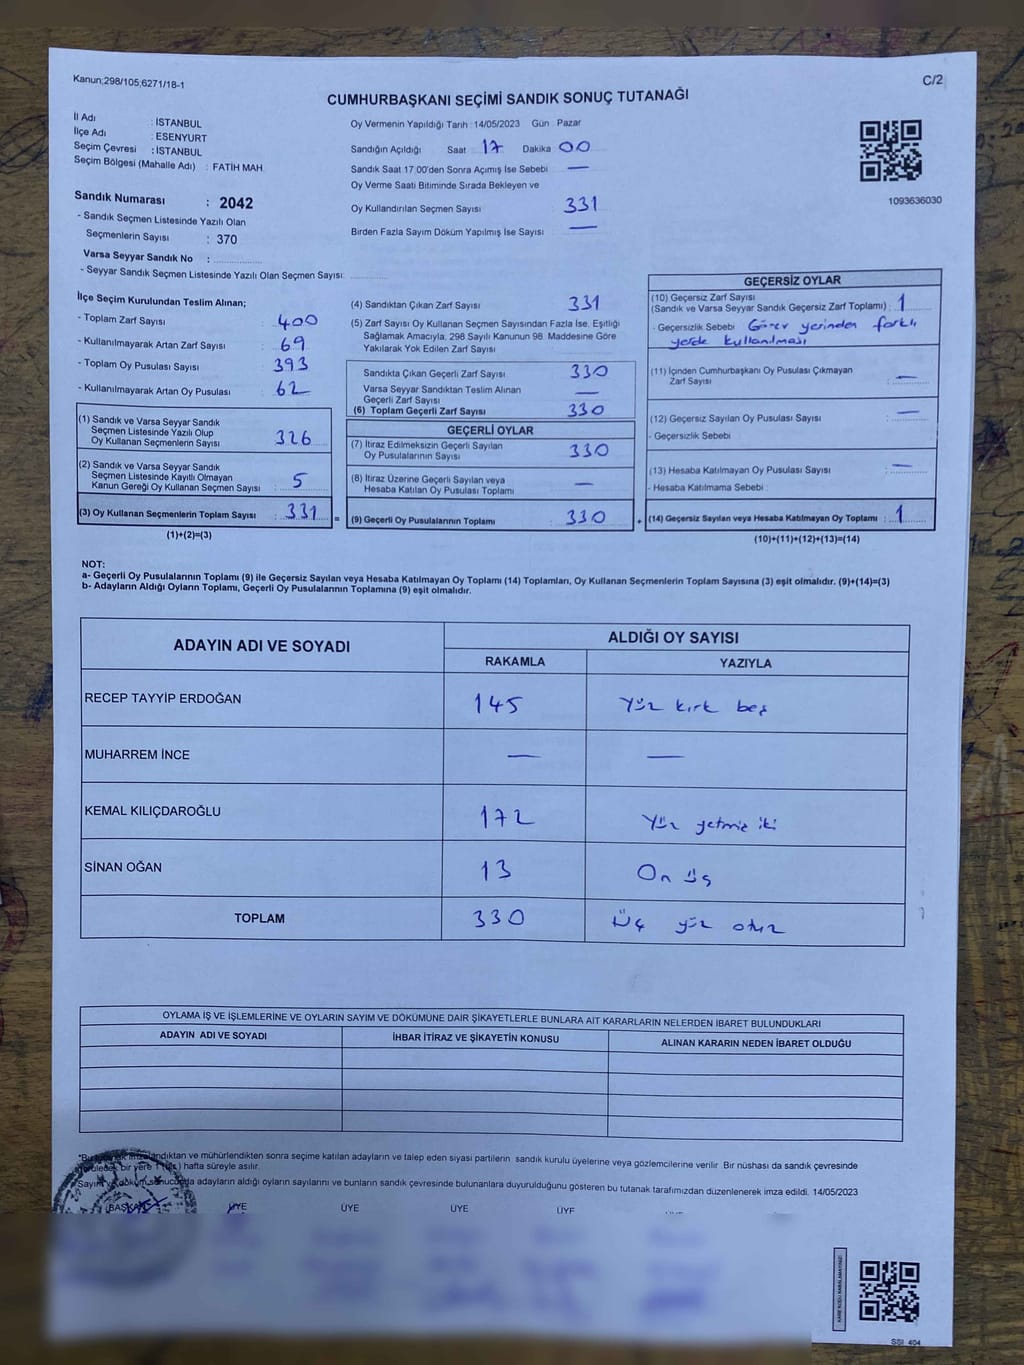 Kanun;298/105;6271/18-1
C/2
CUMHURBAŞKANI SEÇİMİ SANDIK SONUÇ TUTANAĞI
İl Adı : İSTANBUL
İlçe Adı : ESENYURT
Seçim Çevresi : İSTANBUL
Seçim Bölgesi (Mahalle Adı) : FATİH MAH
Sandık Numarası : 2042
- Sandık Seçmen Listesinde Yazılı Olan
Seçmenlerin Sayısı : 370
Varsa Seyyar Sandık No :
- Seyyar Sandık Seçmen Listesinde Yazılı Olan Seçmen Sayısı:
Oy Vermenin Yapıldığı Tarih :14/05/2023 Gün : Pazar
Sandığın Açıldığı Saat 17 Dakika 00
Sandık Saat 17:00'den Sonra Açımış İse Sebebi —
Oy Verme Saati Bitiminde Sırada Bekleyen ve
Oy Kullandırılan Seçmen Sayısı 331
Birden Fazla Sayım Döküm Yapılmış İse Sayısı —
1093636030
İlçe Seçim Kurulundan Teslim Alınan;
- Toplam Zarf Sayısı : 400
- Kullanılmayarak Artan Zarf Sayısı : 69
- Toplam Oy Pusulası Sayısı : 393
- Kullanılmayarak Artan Oy Pusulası : 62
(1) Sandık ve Varsa Seyyar Sandık
Seçmen Listesinde Yazılı Olup
Oy Kullanan Seçmenlerin Sayısı 326
(2) Sandık ve Varsa Seyyar Sandık
Seçmen Listesinde Kayıtlı Olmayan
Kanun Gereği Oy Kullanan Seçmen Sayısı : 5
(3) Oy Kullanan Seçmenlerin Toplam Sayısı : 331 =
(1)+(2)=(3)
(4) Sandıktan Çıkan Zarf Sayısı 331
(5) Zarf Sayısı Oy Kullanan Seçmen Sayısından Fazla İse, Eşitliği
Sağlamak Amacıyla, 298 Sayılı Kanunun 98. Maddesine Göre
Yakılarak Yok Edilen Zarf Sayısı
Sandıkta Çıkan Geçerli Zarf Sayısı 330
Varsa Seyyar Sandıktan Teslim Alınan
Geçerli Zarf Sayısı —
(6) Toplam Geçerli Zarf Sayısı 330
GEÇERLİ OYLAR
(7) İtiraz Edilmeksizin Geçerli Sayılan
Oy Pusulalarının Sayısı 330
(8) İtiraz Üzerine Geçerli Sayılan veya
Hesaba Katılan Oy Pusulası Toplamı —
(9) Geçerli Oy Pusulalarının Toplamı 330 +
GEÇERSİZ OYLAR
(10) Geçersiz Zarf Sayısı
(Sandık ve Varsa Seyyar Sandık Geçersiz Zarf Toplamı) : 1
- Geçersizlik Sebebi Görev yerinden farklı
yerde kullanılması
(11) İçinden Cumhurbaşkanı Oy Pusulası Çıkmayan
Zarf Sayısı : —
(12) Geçersiz Sayılan Oy Pusulası Sayısı : —
- Geçersizlik Sebebi
(13) Hesaba Katılmayan Oy Pusulası Sayısı : —
- Hesaba Katılmama Sebebi
(14) Geçersiz Sayılan veya Hesaba Katılmayan Oy Toplamı : 1
(10)+(11)+(12)+(13)=(14)
NOT:
a- Geçerli Oy Pusulalarının Toplamı (9) ile Geçersiz Sayılan veya Hesaba Katılmayan Oy Toplamı (14) Toplamları, Oy Kullanan Seçmenlerin Toplam Sayısına (3) eşit olmalıdır. (9)+(14)=(3)
b- Adayların Aldığı Oyların Toplamı, Geçerli Oy Pusulalarının Toplamına (9) eşit olmalıdır.
ADAYIN ADI VE SOYADI ALDIĞI OY SAYISI
RAKAMLA YAZIYLA
RECEP TAYYİP ERDOĞAN 145 Yüz kırk beş
MUHARREM İNCE — —
KEMAL KILIÇDAROĞLU 172 Yüz yetmiş iki
SİNAN OĞAN 13 On üş
TOPLAM 330 Üç yüz otuz
OYLAMA İŞ VE İŞLEMLERİNE VE OYLARIN SAYIM VE DÖKÜMÜNE DAİR ŞİKAYETLERLE BUNLARA AİT KARARLARIN NELERDEN İBARET BULUNDUKLARI
ADAYIN ADI VE SOYADI İHBAR İTİRAZ VE ŞİKAYETİN KONUSU ALINAN KARARIN NEDEN İBARET OLDUĞU
imzalandıktan ve mühürlendikten sonra seçime katılan adayların ve talep eden siyasi partilerin sandık kurulu üyelerine veya gözlemcilerine verilir. Bir nüshası da sandık çevresinde
bir yere 1 hafta süreyle asılır.
Sayım ve döküm sonucunda adayların aldığı oyların sayılarını ve bunların sandık çevresinde bulunanlara duyurulduğunu gösteren bu tutanak tarafımızdan düzenlenerek imza edildi. 14/05/2023
BAŞKAN ÜYE ÜYE ÜYE ÜYE
SSI 404